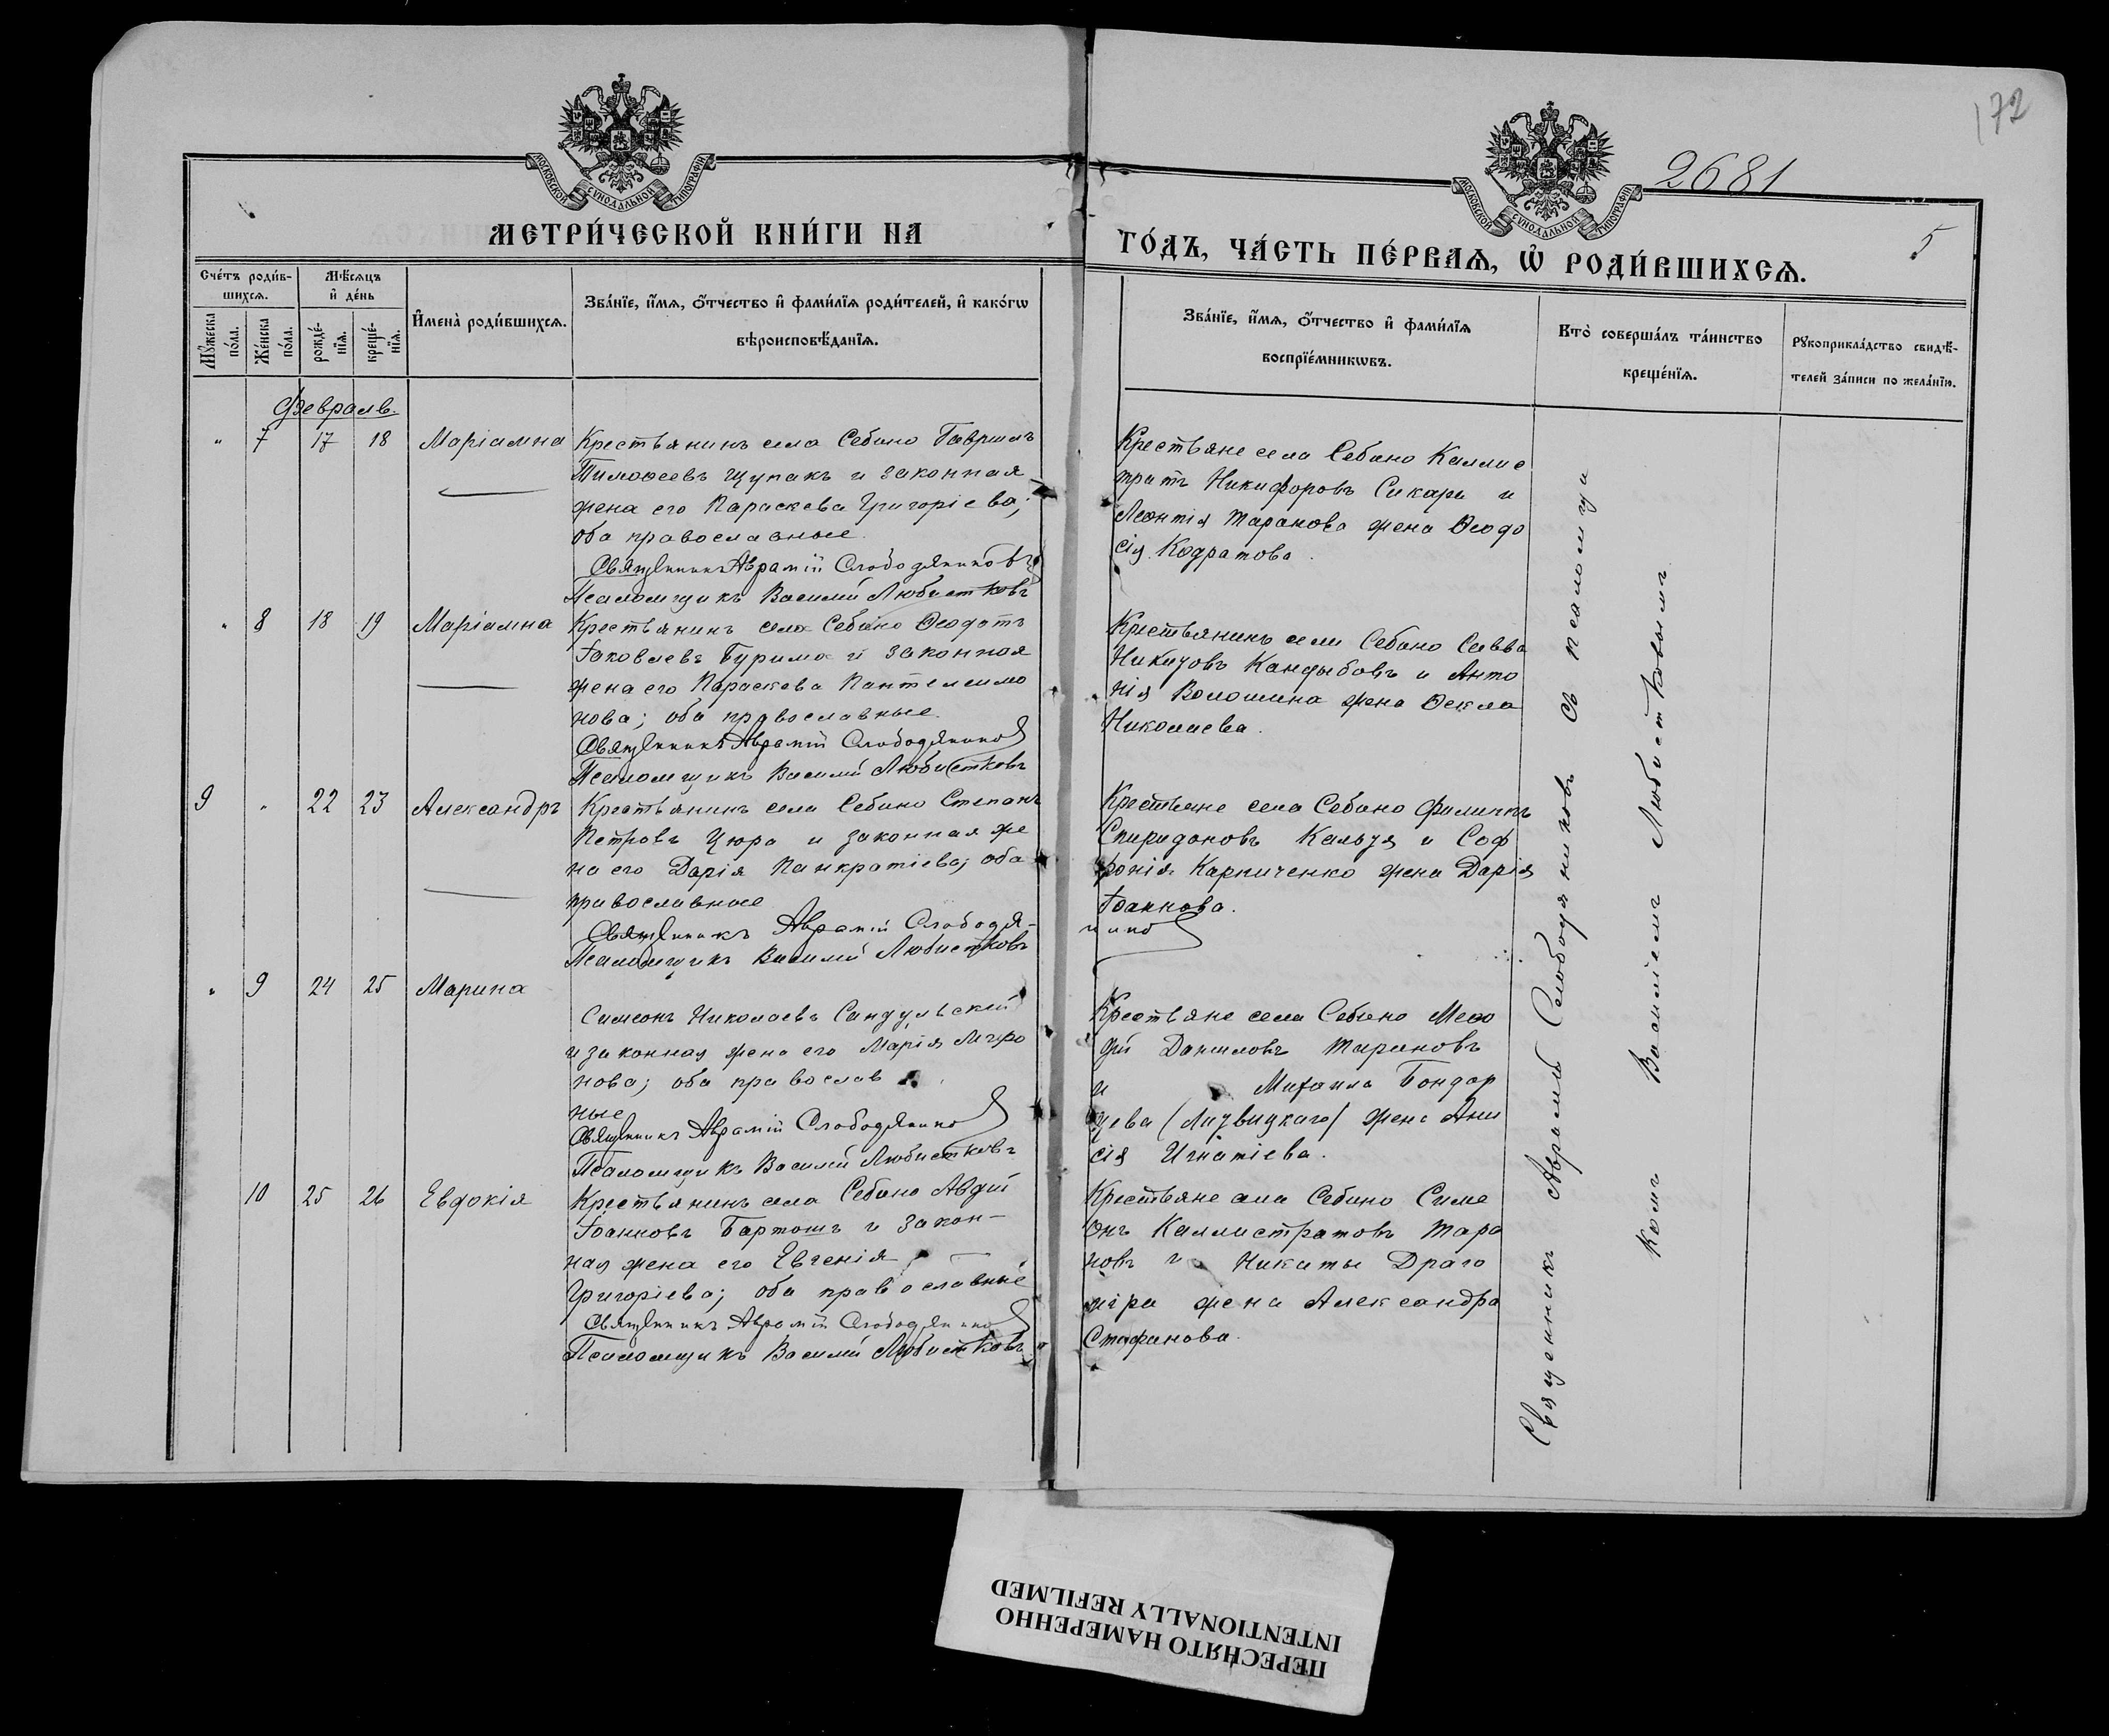 172
2681
5
МОСКОВСКОЙ СѴНОДАЛЬНОЙ ТИПОГРАФІИ
МОСКОВСКОЙ СѴНОДАЛЬНОЙ ТИПОГРАФІИ
МЕТРИ́ЧЕСКОЙ КНИ́ГИ НА
ГО́ДЪ, ЧА́СТЬ ПЕ́РВАѦ, Ѡ҆ РОДИ́ВШИХСѦ.
Сче́тъ роди́в-
шихся.
Мѣ́сяцъ
и҆ де́нь
Мꙋ́жеска
по́ла.
Же́нска
по́ла.
рожде́-
нїя.
креще́-
нїя.
И҆мена̀ роди́вшихся.
Зва́нїе, и҆́мя, ѻ҆́тчество и҆ фами́лїя роди́телей, и҆ како́гѡ
вѣроисповѣ́данїя.
Зва́нїе, и҆́мя, ѻ҆́тчество и҆ фами́лїя
воспрїе́мникѡвъ.
Кто̀ соверша́лъ та́инство
креще́нїя.
Рꙋкоприкла́дство свидѣ́-
телей за́писи по жела́нїю.
Февраль.
" 7 17 18 Маріамна
Крестьянинъ села Себино Гавріилъ
Тимоѳеевъ Щупакъ и законная
жена его Параскева Григоріева;
оба православные
Священникъ Аврамій Слободяниковъ
Псаломщикъ Василий Любистковъ
Крестьяне села Себино Каллис
тратъ Никифоровъ Сикара и
Леонтія Таранова жена Ѳеодо
сія Кодратова.
" 8 18 19 Маріамна
Крестьянинъ села Себино Ѳеодотъ
Іаковлевъ Бурима и законная
жена его Параскева Пантелеимо
нова; оба православные.
Священникъ Аврамій Слободянико
Псаломщикъ Василий Любистковъ
Крестьянинъ села Себино Савва
Никитовъ Кандыбовъ и Анто
нія Волошина жена Ѳекла
Николаева.
9 " 22 23 Александръ
Крестьянинъ села Себино Степанъ
Петровъ Цюра и законная же
на его Дарія Панкратіева; оба
православные
Священникъ Аврамій Слободя-
нико
Псаломщикъ Василий Любистковъ
Крестьяне села Себино Филиппъ
Спиридоновъ Кальзя и Соф
ронія Карпиченко жена Дарія
Іоаннова.
" 9 24 25 Марина
Симеонъ Николаевъ Сандульскій
и законная жена его Марія Миро
нова; оба православ
ные
Священникъ Аврамій Слободянико
Псаломщикъ Василий Любистковъ
Крестьяне села Себино Меѳо
дій Даниловъ Тарановъ
и Михаила Бондар
цева (Лизвицкаго) жена Ани
сія Игнатіева.
10 25 26 Евдокія
Крестьянинъ села Себино Авдій
Іоанновъ Бартошъ и закон-
ная жена его Евгенія
Григоріева; оба православные
Священникъ Аврамій Слободянико
Псаломщикъ Василий Любистковъ
Крестьяне села Себино Симе
онъ Каллистратовъ Тара
новъ и Никиты Драго
мира жена Александра
Стефанова.
Священникъ Аврамій Слободяниковъ съ псаломщи
комъ Василіемъ Любистковымъ
ПЕРЕСНЯТО НАМЕРЕННО
INTENTIONALLY REFILMED